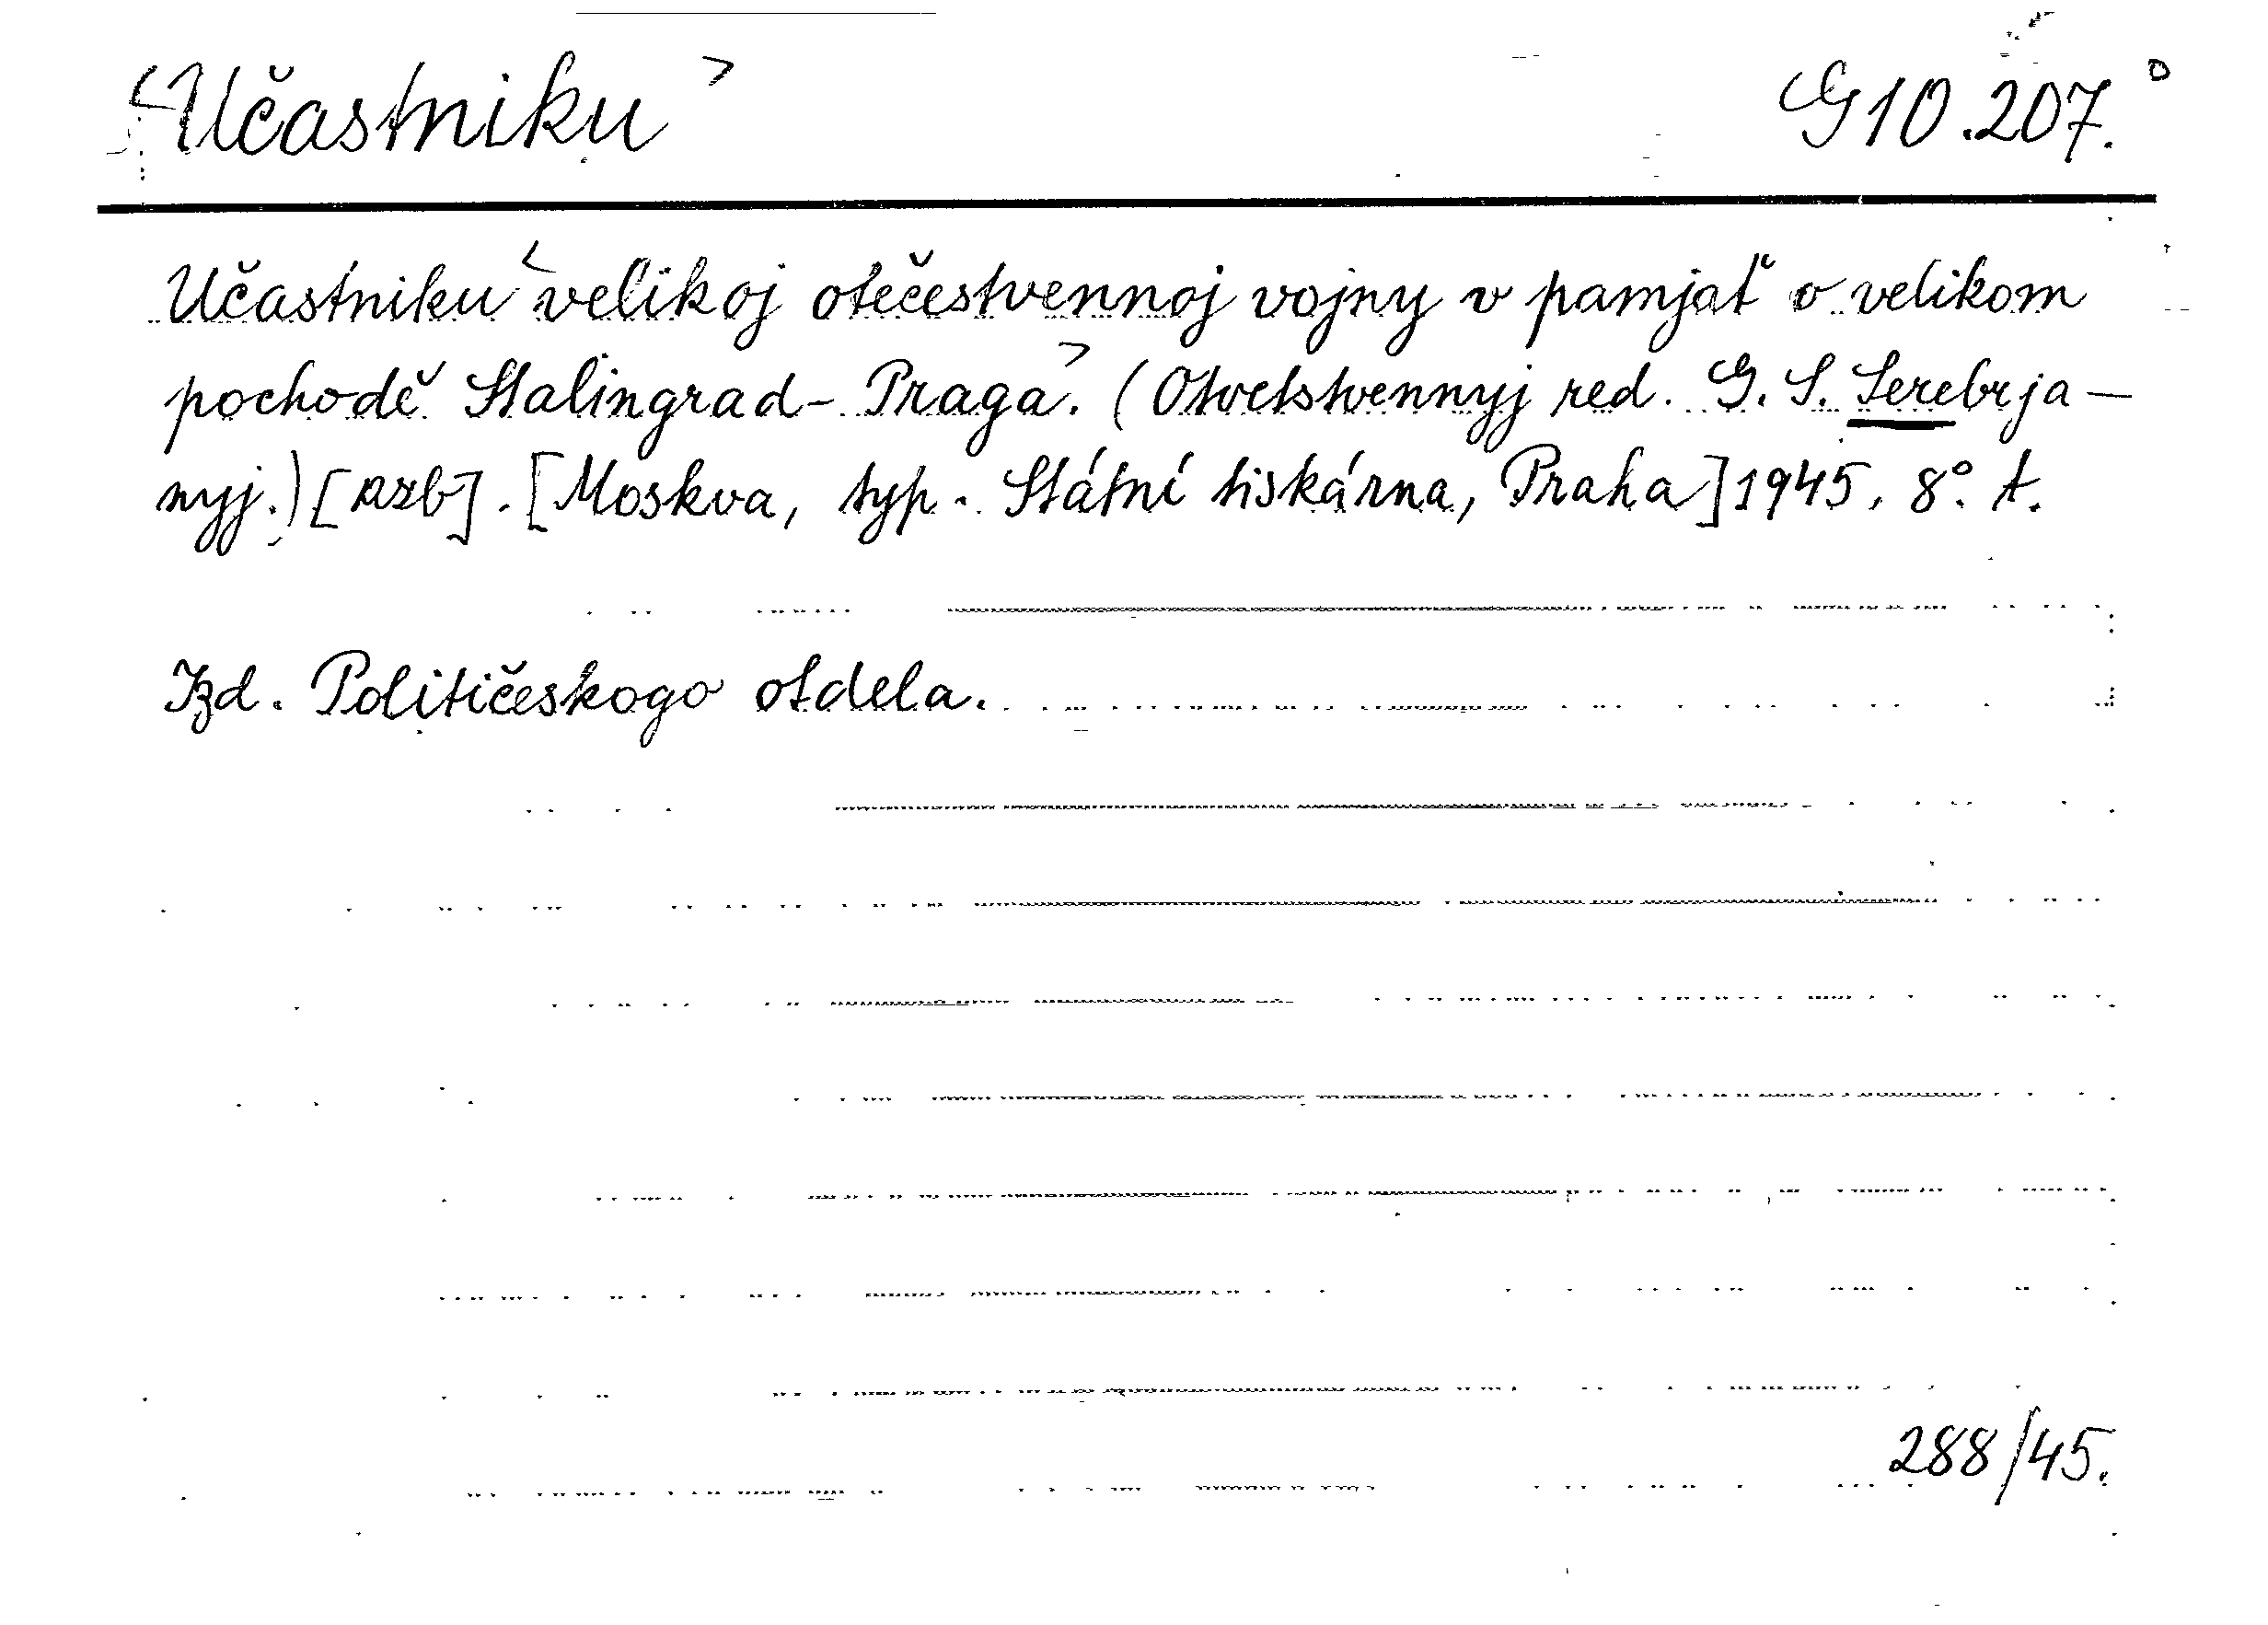 <Učastniku> G 10.207.°
Učastniku <velikoj otečestvennoj vojny v pamjať o velikom
pochodě Stalingrad-Praga>. (Otvetstvennyj red. G. S. Serebrja-
nyj.) [azb]. [Moskva, typ. Státní tiskárna, Praha] 1945. 8°. t.
Izd. Političeskogo otdela.
288/45.